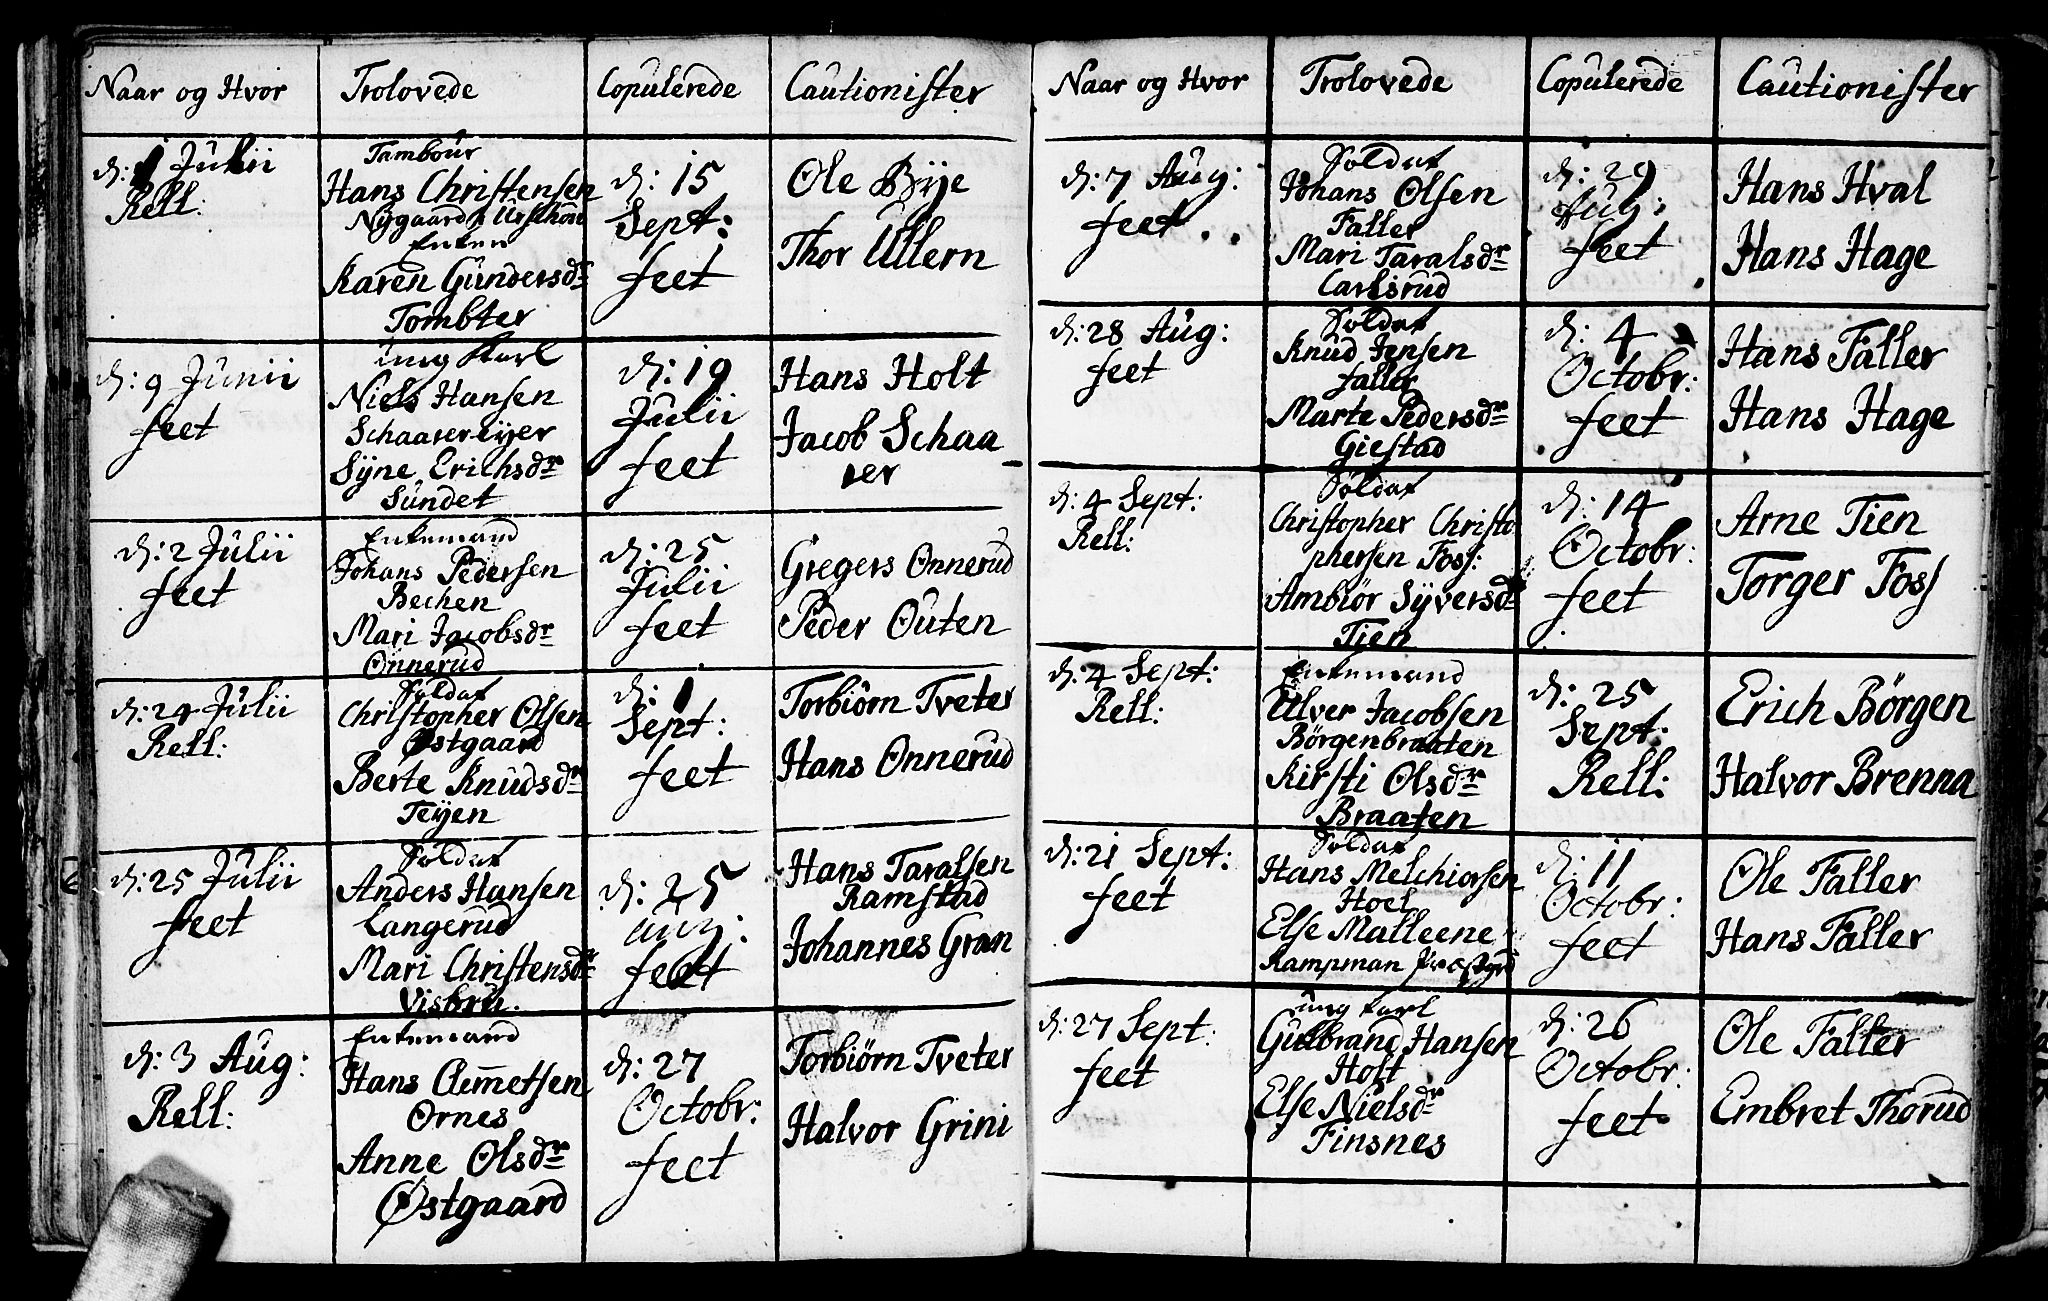 Naar og Hvor
Trolovede
Copulerede
Cautionister
d: 1 Julii
Rell:
Tambour
Hans Christensen
Nygaard
Enken
Karen Gundersdr
Tombter
d: 15
Sept:
feet
Ole Bÿe
Thor Ullern
d: 9 Junii
feet
ung Karl
Niels Hansen
Schaarereÿer
Sÿne Erichsdr
Sundet
d: 19
Julii
feet
Hans Holt
Jacob Schaa
rer
d: 2 Julii
feet
Enkemand
Johans Pedersen
Bechen
Mari Jacobsdr
Onnerud
d: 25
Julii
feet
Gregers Onnerud
Peder Outen
d: 24 Julii
Rell:
Soldat
Christopher Olsen
Østgaard
Berte Knudsdr
Teÿen
d: 1
Sept:
feet
Torbiörn Tveter
Hans Onnerud
d: 25 Julii
feet
Soldat
Anders Hansen
Langerud
Mari Christensdr
Visbru.
d: 25
Aug:
feet
Hans Taralsen
Ramstad
Johannes Gran
d: 3 Aug:
Rell:
Enkemand
Hans Clemetsen
Ornes
Anne Olsdr
Østgaard
d: 27
Octobr:
feet
Torbiörn Tveter
Halvor Grini
Naar og Hvor
Trolovede
Copulerede
Cautionister
d: 7 Aug:
feet
Soldat
Johans Olsen
Faller
Mari Taralsdr
Carlsrud
d: 29
Aug:
feet
Hans Hval
Hans Hage
d: 28 Aug:
feet
Soldat
Knud Jensen
Faller
Marte Pedersdr
Giestad
d: 4
Octobr:
feet
Hans Faller
Hans Hage
d: 4 Sept:
Rell:
Soldat
Christopher Christo
phersen Foss:
Ambiör Sÿversdr
Tien
d: 14
Octobr:
feet
Arne Tien
Torger Foss
d: 4 Sept:
Rell:
Enkemand
Ulver Jacobsen
Börgenbraaten
Kirsti Olsdr
Braaten
d: 25
Sept:
Rell:
Erich Börgen
Halvor Brenna
d: 21 Sept:
feet
Soldat
Hans Melchiorsen
Hoel
Else Malleene
Rampman
d: 11
Octobr:
feet
Ole Faller
Hans Faller
d: 27 Sept:
feet
ung karl
Gulbrand Hansen
Holt
Else Nielsdr
Finsnes
d: 26
Octobr:
feet
Ole Faller
Embret Thorud